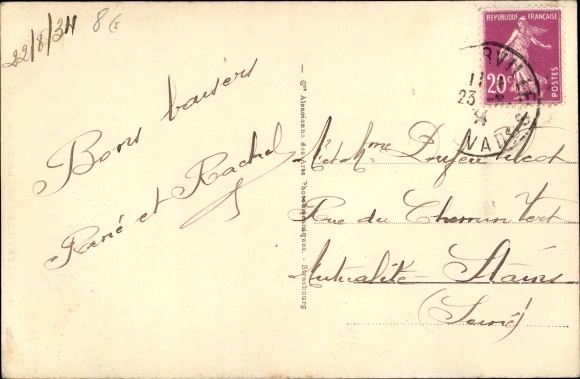 22/8/34
8€
Bons baisers
René et Rachel
— Gie Alsacienne des Arts Photomécaniques. - Strasbourg
REPUBLIQUE FRANÇAISE
20c
POSTES
RVILLE
11
23
CALVADOS
M. et Mme
Rue du Chemin Vert
Mutualité - Stains
(Seine)